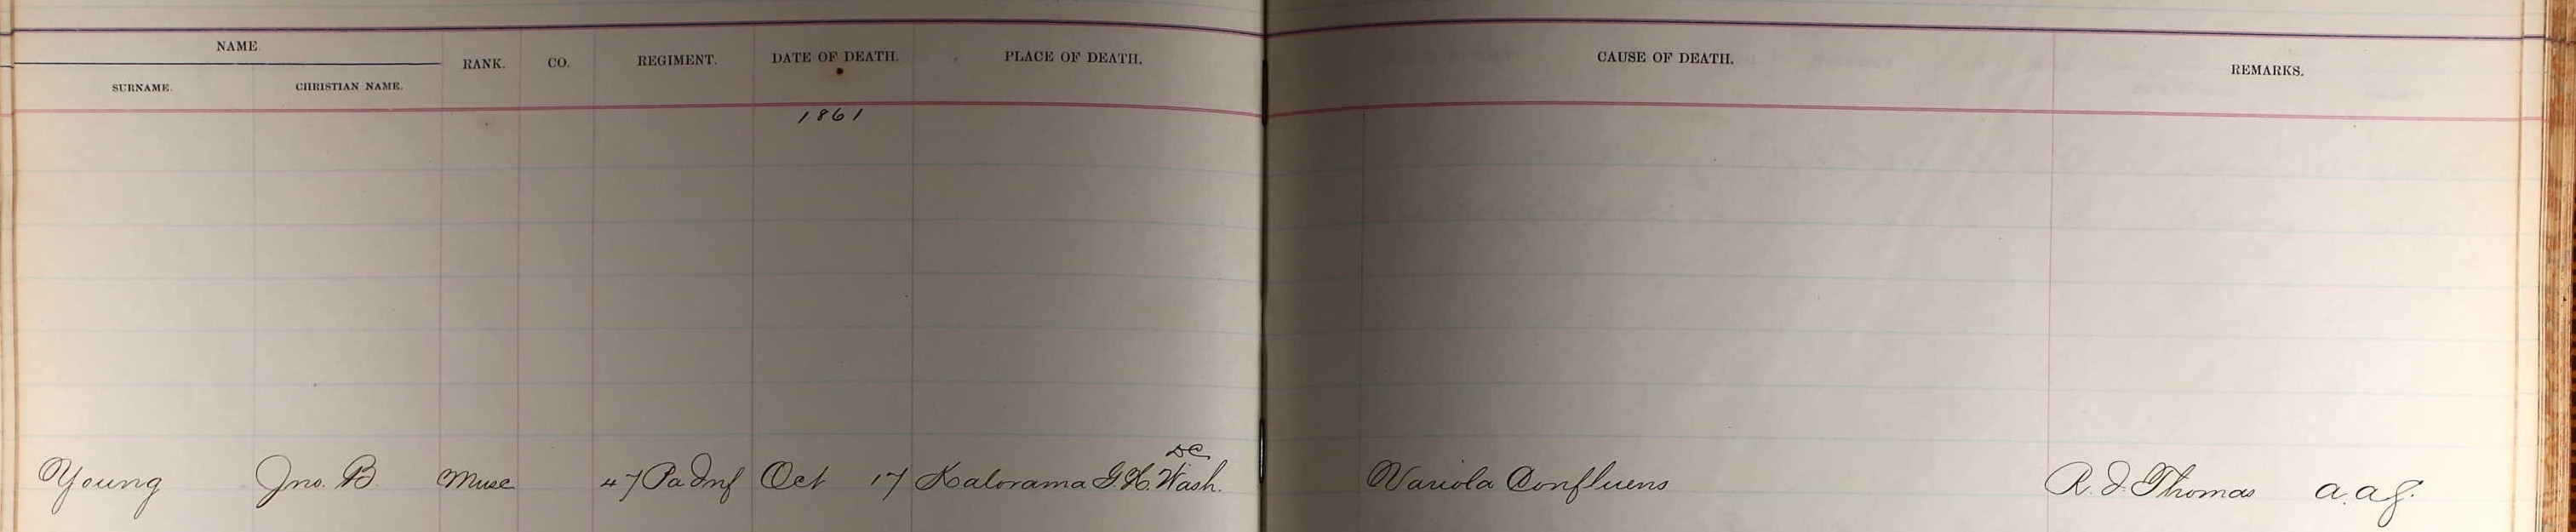 NAME.
SURNAME. CHRISTIAN NAME. RANK. CO. REGIMENT. DATE OF DEATH. PLACE OF DEATH. CAUSE OF DEATH. REMARKS.
1861
DC
Young Jno. B. Musc 47 Pa Inf Oct 17 Kalorama G.H. Wash. Variola Confluens R. I. Thomas a.a.g.